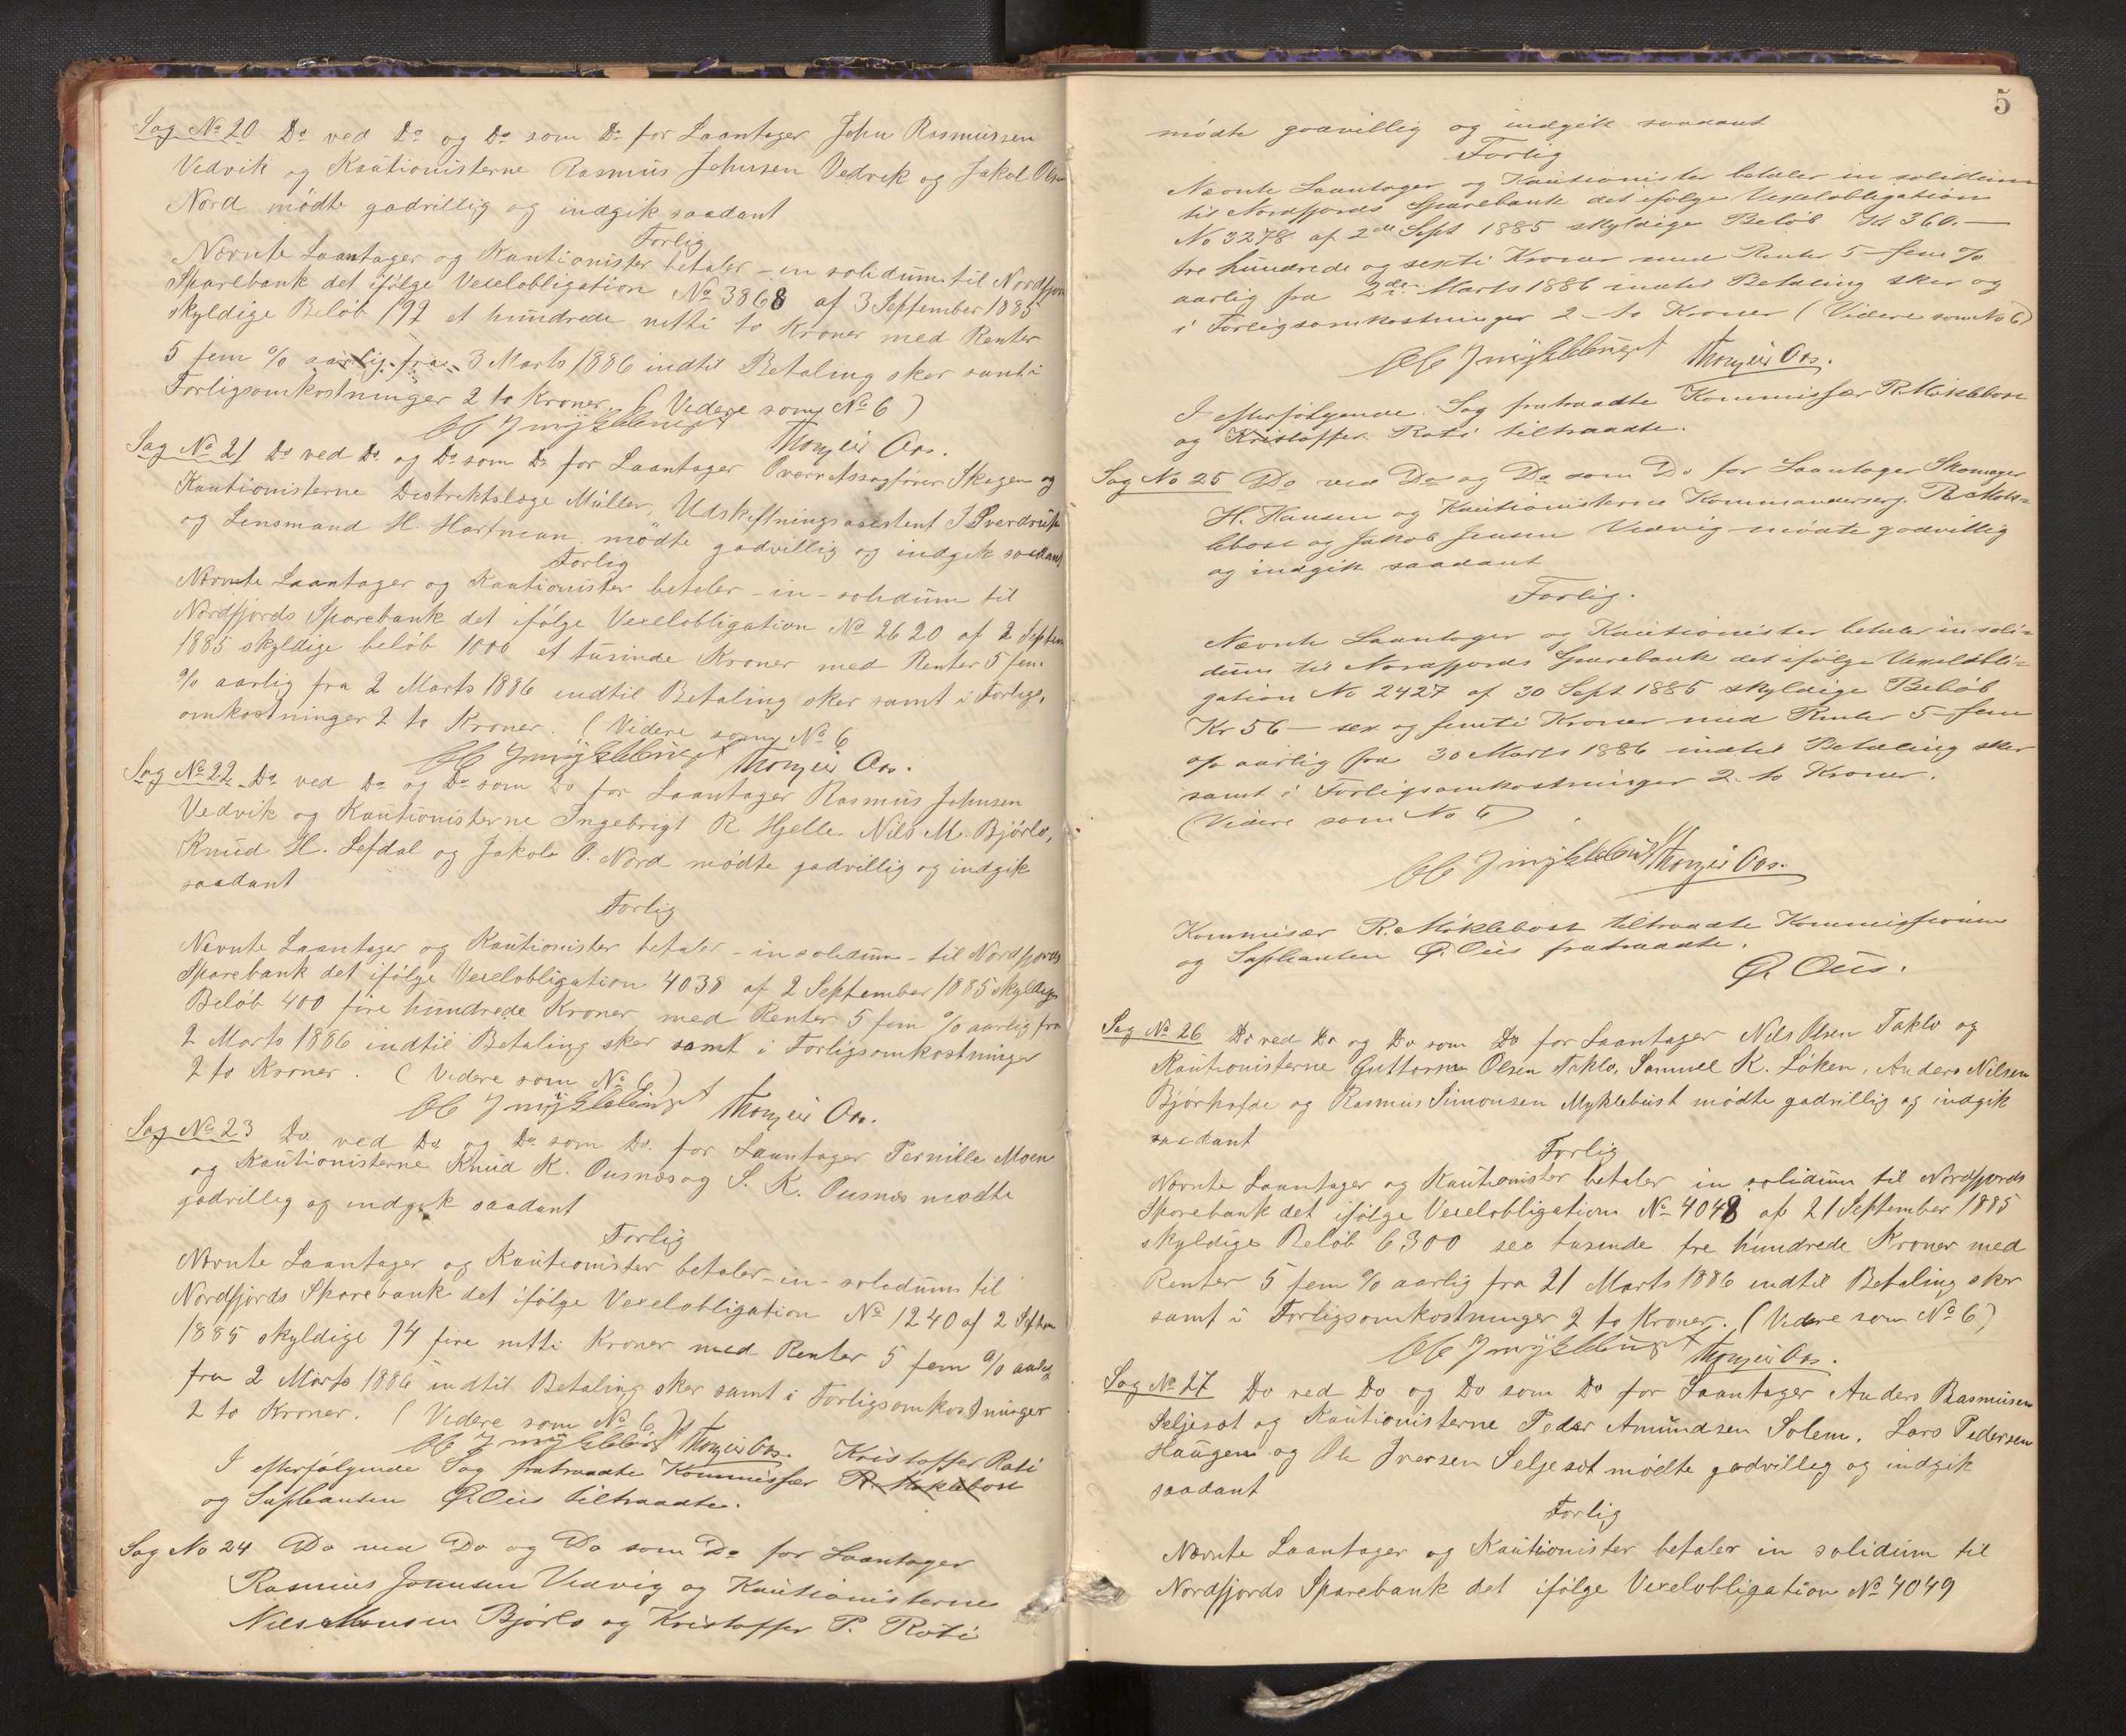 Sag No 20 Do ved Do og Do som Do for Laantager John Rasmussen
Vedvik og Kautionisterne Rasmus Johnsen Vedvik og Jakob Olsen
Nord mødte godvillig og indgik saadant
Forlig
Nævnte Laantager og Kautionister betaler - in solidum til Nordfjords
Sparebank det ifølge Vexelobligation No 3868 af 3 September 1885
skyldige Beløb 192 et hundrede nitti to Kroner med Renter
5 fem % aarlig fra 3 Marts 1886 indtil Betaling sker samt i
Forligsomkostninger 2 to Kroner. (Videre som No 6)
Thorgeir Aas.
Sag No 21 Do ved Do og Do som Do for Laantager Overretssagfører Skagen og
Kautionisterne Distriktslæge Müller, Udskiftningsassistent J Sverdrup
og Lensmand H. Hartman mødte godvillig og indgik saadant
Forlig
Nævnte Laantager og Kautionister betaler - in - solidum til
Nordfjords Sparebank det ifølge Vexelobligation No 2620 af 2 Septem
1885 skyldige beløb 1000 et tusinde Kroner med Renter 5 fem
% aarlig fra 2 Marts 1886 indtil Betaling sker samt i Forligs,
omkostninger 2 to Kroner. (Videre som No 6
Thorgeir Aas.
Sag No 22 Do ved Do og Do som Do for Laantager Rasmus Johnsen
Vedvik og Kautionisterne Ingebrigt R Hjelle Nils M. Bjørlo,
Knud H. Lefdal og Jakob O. Nord mødte godvillig og indgik
saadant
Forlig
Nævnte Laantager og Kautionister betaler - in solidum - til Nordfjords
Sparebank det ifølge Vexelobligation 4038 af 2 September 1885 skyldige
Beløb 400 fire hundrede Kroner med Renter 5 fem % aarlig fra
2 Marts 1886 indtil Betaling sker samt i Forligsomkostninger
2 to Kroner. (Videre som No 6)
Thorgeir Aas.
Sag No 23 Do ved Do og Do som Do for Laantager Pernille Moen
og Kautionisterne Knud K. Ousnes og S. K. Ousnes mødte
godvillig og indgik saadant
Forlig
Nævnte Laantager og Kautionister betaler - in - solidum til
Nordfjords Sparebank det ifølge Vexelobligation No 1240 af 2 Septem
1885 skyldige 94 fire nitti Kroner med Renter 5 fem % aarlig
fra 2 Marts 1886 indtil Betaling sker samt i Forligsomkostninger
2 to Kroner. (Videre som No 6)
Thorgeir Aas. Kristoffer Roti
I efterfølgende Sag fratraadte Kommissær R. Møklebost
og Supleanten Ø. Ous tiltraadte.
Sag No 24 Do ved Do og Do som Do for Laantager
Rasmus Johnsen Vedvig og Kautionisterne
Nils Monsen Bjørlo og Kristoffer P. Roti
5
mødte godvillig og indgik saadant
Forlig
Nævnte Laantager og Kautionister betaler in solidum
til Nordfjords Sparebank det ifølge Vexelobligation
No 3278 af 2den Sept 1885 skyldige Beløb Kr 360. —
tre hundrede og sexti Kroner med Renter 5 - fem %
aarlig fra 2den Marts 1886 indtil Betaling sker og
i Forligsomkostninger 2 - to Kroner (Videre som No 6)
Thorgeir Aas.
I efterfølgende Sag fratraadte Kommissær R. Møklebost
og Kristoffer Roti tiltraadte.
Sag No 25 Do ved Do og Do som Do for Laantager Skomager
H. Hansen og Kautionisterne Kommandersrg. R. Møk=
lebost og Jakob Jensen Vedvig mødte godvillig
og indgik saadant
Forlig.
Nævnte Laantager og Kautionister betaler in soli=
dum til Nordfjords Sparebank det ifølge Vexelobli=
gation No 2427 af 30 Sept 1885 skyldige Beløb
Kr 56 — sex og femti Kroner med Renter 5 - fem
o/o aarlig fra 30 Marts 1886 indtil Betaling sker
samt i Forligsomkostninger 2 - to Kroner.
(Videre som No 6)
Thorgeir Aas.
Kommissær R. Møklebost tiltraadte Kommissionen
og Supleanten Ø. Ous fratraadte.
Ø. Ous.
Sag No 26 Do ved Do og Do som Do for Laantager Nils Olsen Taklo og
Kautionisterne Guttorm Olsen Taklo, Samuel K. Løken, Anders Nilsen
Bjørhofde og Rasmus Simonsen Myklebust mødte godvillig og indgik
saadant
Forlig
Nævnte Laantager og Kautionister betaler in solidum til Nordfjords
Sparebank det ifølge Vexelobligation No 4048 af 21 September 1885
skyldige Beløb 6300 sex tusinde tre hundrede Kroner med
Renter 5 fem % aarlig fra 21 Marts 1886 indtil Betaling sker
samt i Forligsomkostninger 2 to Kroner. (Videre som No 6)
Thorgeir Aas.
Sag No 27 Do ved Do og Do som Do for Laantager Anders Rasmusen
Seljeset og Kautionisterne Peder Amundsen Solem, Lars Pedersen
Haugen og Ole Iversen Seljeset mødte godvillig og indgik
saadant
Forlig
Nævnte Laantager og Kautionister betaler in solidum til
Nordfjords Sparebank det ifølge Vexelobligation No 4049